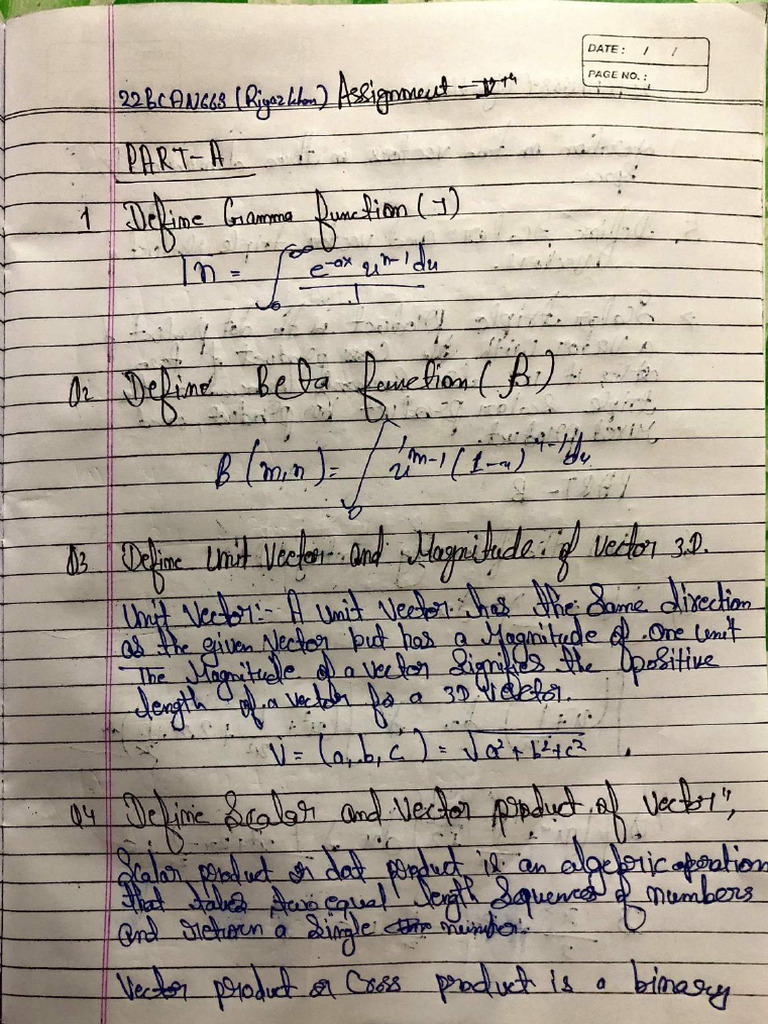 DATE: / /
PAGE NO.:
22BCAN663 (Riyaz khan) Assignment -
PART-A
1 Define Gamma function (γ)
Γn = ∫₀^∞ e^-ax x^n-1 dx
Q2 Define Beta function (β)
B (m,n) = ∫₀^1 x^m-1 (1-x)^n-1 dx
Q3 Define Unit Vector and Magnitude of vector 3D.
Unit Vector:- A unit vector has the same direction
as the given vector but has a Magnitude of one unit
The Magnitude of a vector signifies the positive
length of a vector fo a 3D vector.
V = (a, b, c) = √a²+b²+c²
Q4 Define Scalar and Vector product of Vector",
Scalar product or dot product is an algebric operation
that takes two equal length sequences of numbers
and return a single number.
Vector product or Coss product is a binary